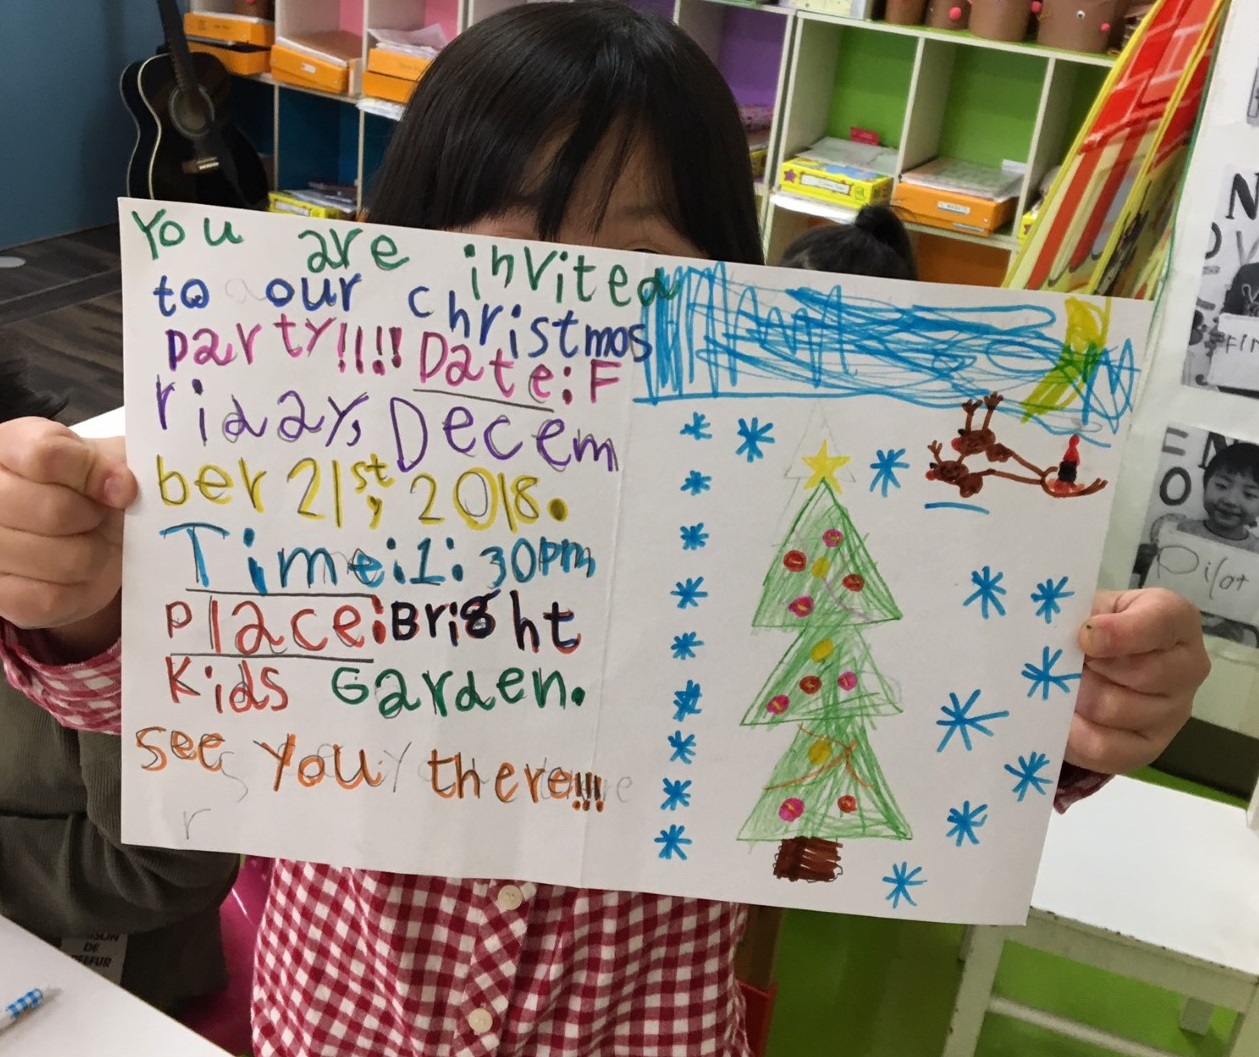 You are invited
to our christmas
party!!!! Date: F
riday, Decem
ber 21st, 2018.
Time: 1:30pm
place: Bright
Kids Garden.
see you there!!!
r
Pilot
DE